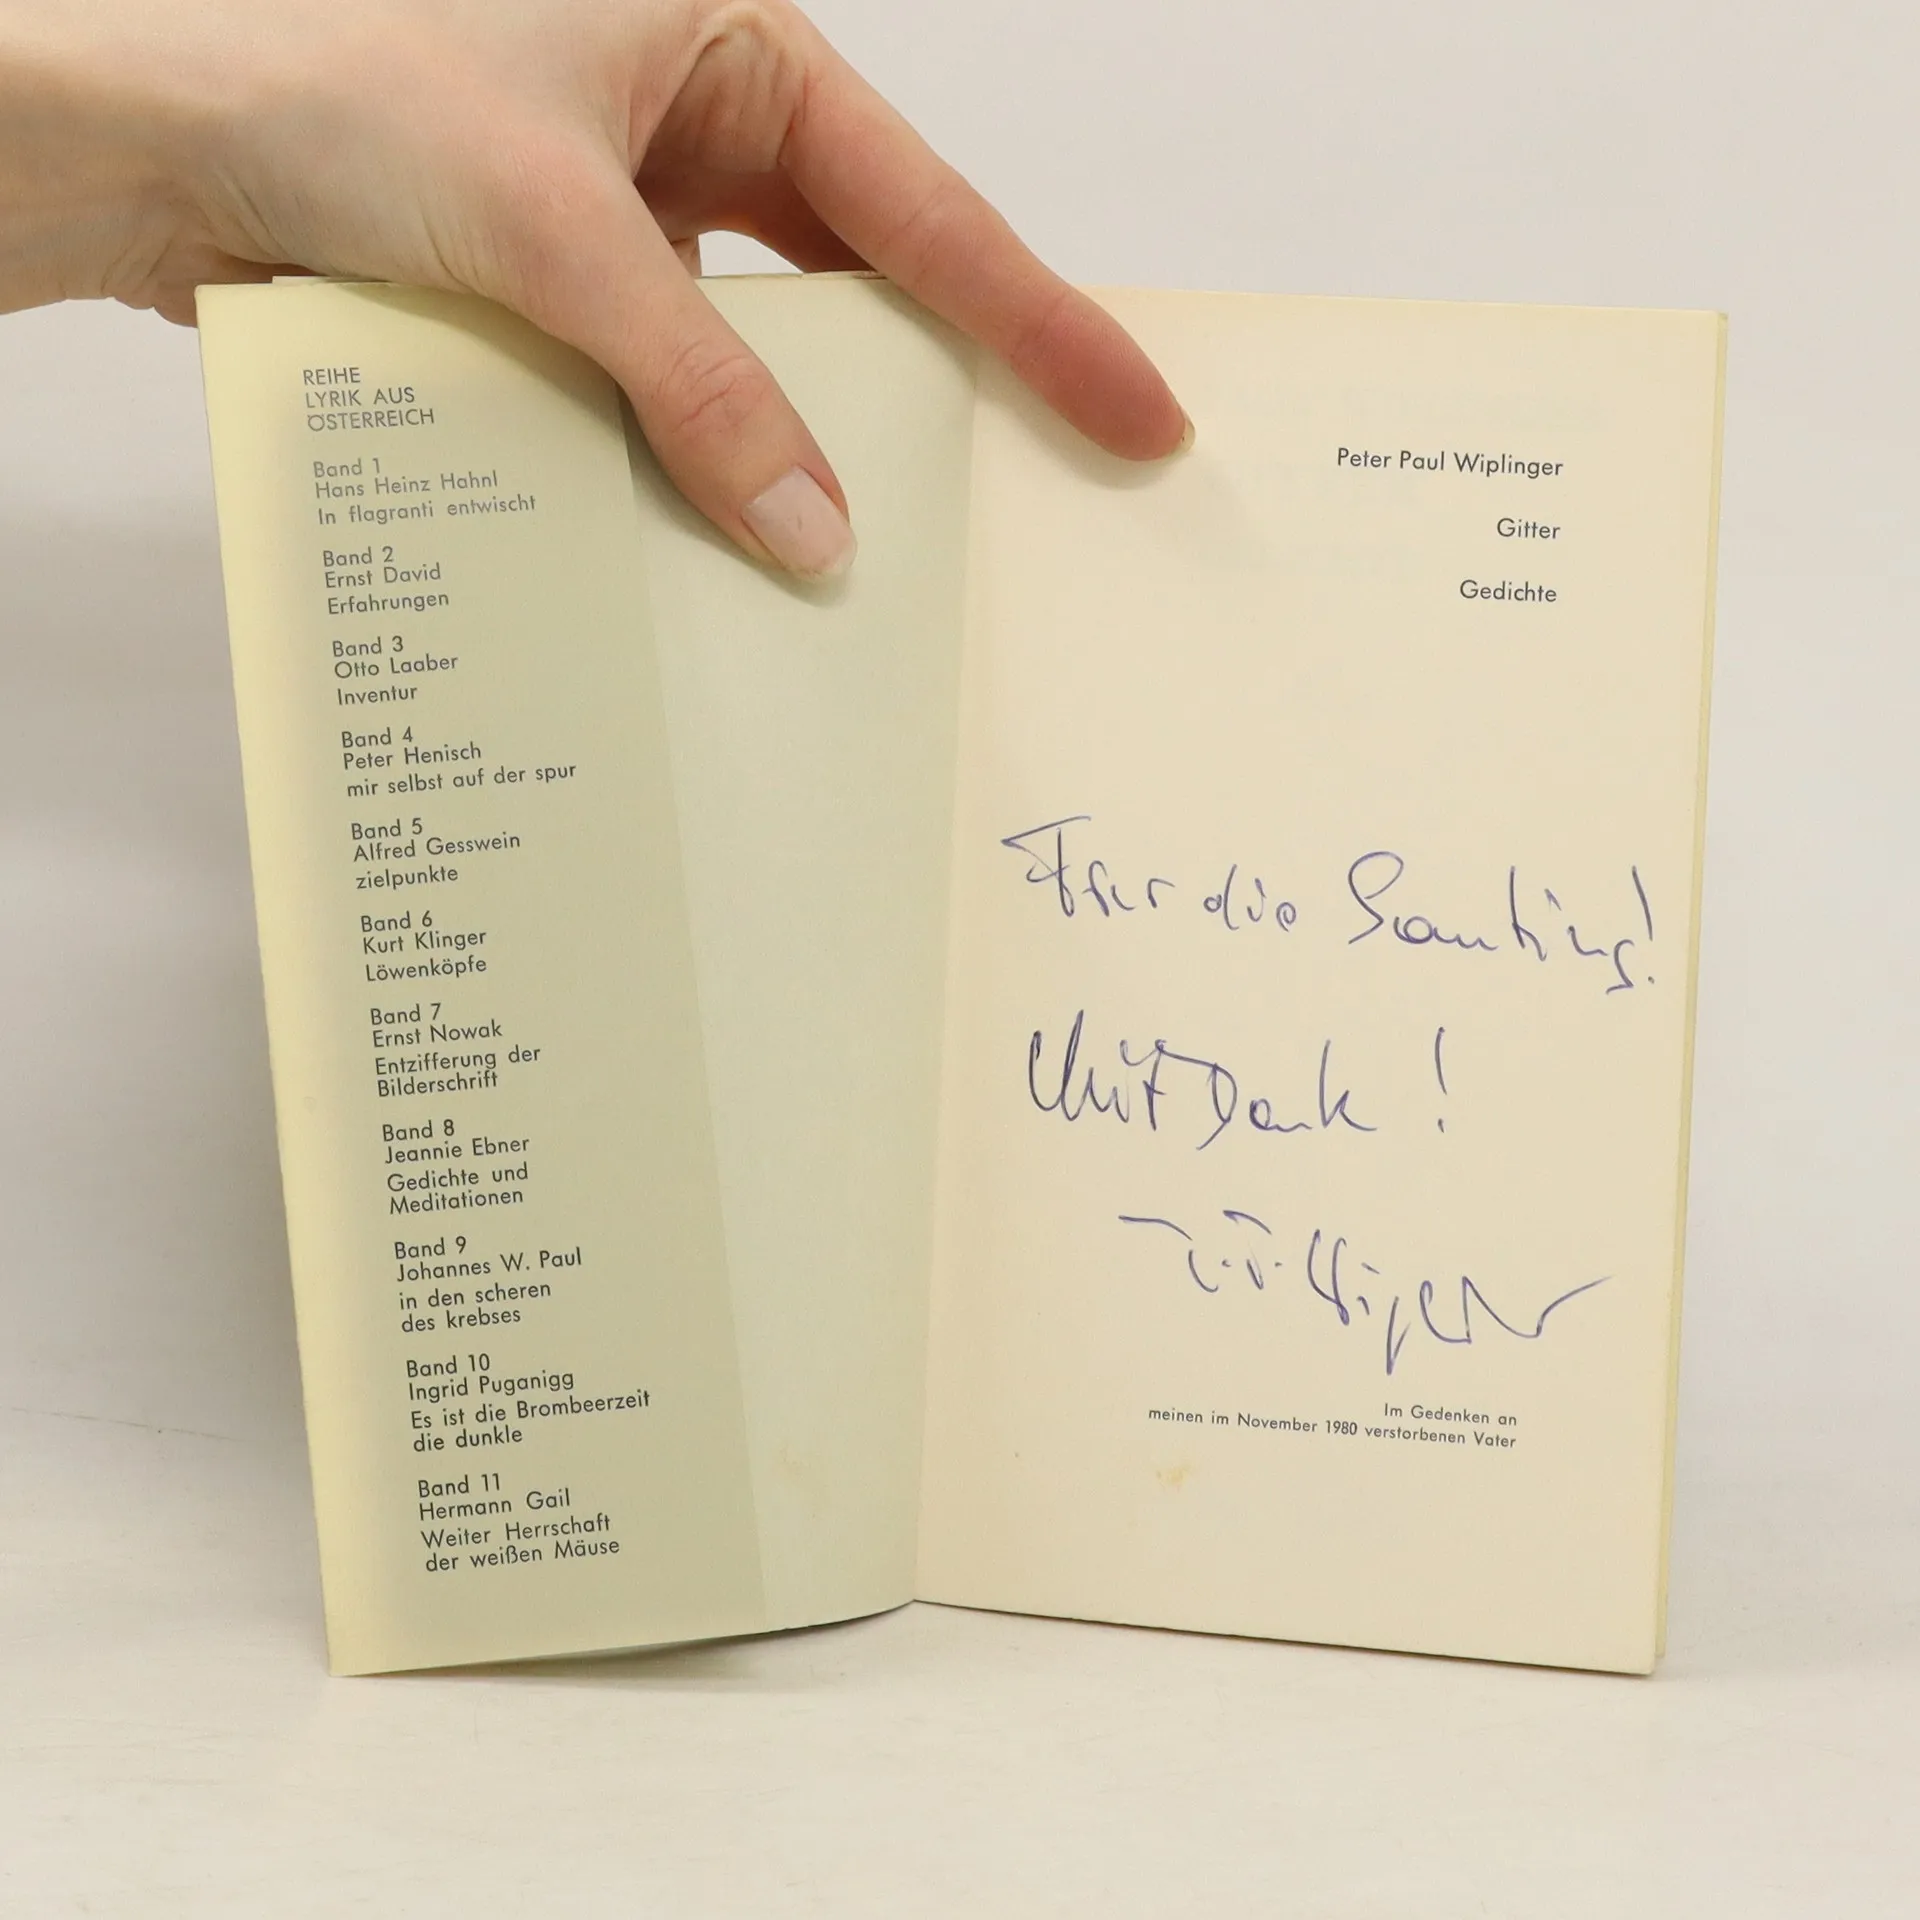 REIHE
LYRIK AUS
ÖSTERREICH
Band 1
Hans Heinz Hahnl
In flagranti entwischt
Band 2
Ernst David
Erfahrungen
Band 3
Otto Laaber
Inventur
Band 4
Peter Henisch
mir selbst auf der spur
Band 5
Alfred Gesswein
zielpunkte
Band 6
Kurt Klinger
Löwenköpfe
Band 7
Ernst Nowak
Entzifferung der
Bilderschrift
Band 8
Jeannie Ebner
Gedichte und
Meditationen
Band 9
Johannes W. Paul
in den scheren
des krebses
Band 10
Ingrid Puganigg
Es ist die Brombeerzeit
die dunkle
Band 11
Hermann Gail
Weiter Herrschaft
der weißen Mäuse
Peter Paul Wiplinger
Gitter
Gedichte
die
Mit Dank!
Im Gedenken an
meinen im November 1980 verstorbenen Vater